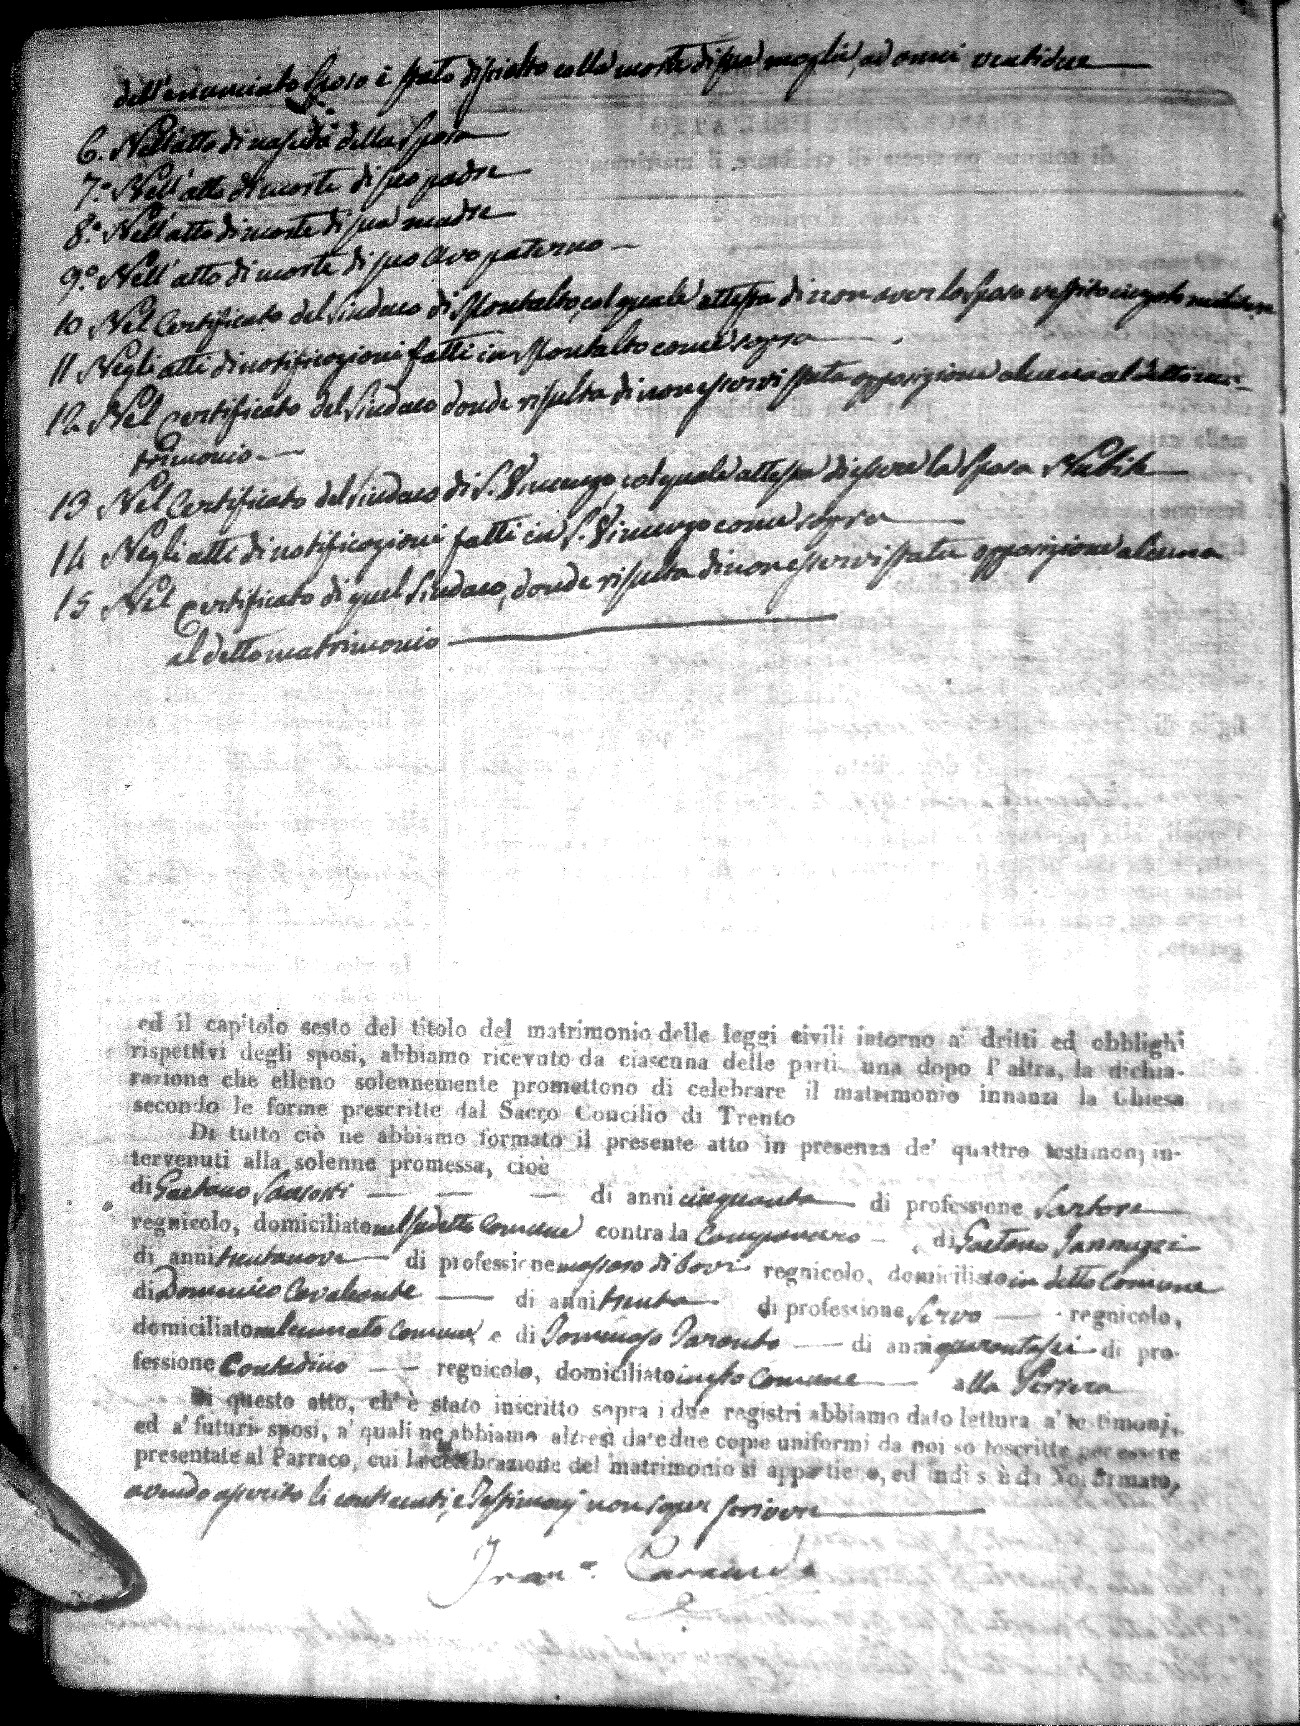 dell'enunciato Sposo è stato disciolto colla morte di sua moglie, ad anni ventidue
6. Nell'atto di nascita della Sposa
7.° Nell'atto di morte di suo padre
8.° Nell'atto di morte di sua madre
9.° Nell'atto di morte di suo Avo paterno
10 Nel Certificato del Sindaco di Montalto, col quale attesta di non aver lo Sposo vestito
11 Negli atti di notificazioni fatti in Montalto come sopra
12 Nel certificato del Sindaco donde risulta di non esservi stata opposizione alcuna al detto ma-
trimonio
13 Nel Certificato del Sindaco di S. Vincenzo, col quale attesta di essere la Sposa Nubile
14 Negli atti di notificazioni fatti in S. Vincenzo come sopra
15 Nel Certificato di quel Sindaco, donde risulta di non esservi stata opposizione alcuna
al detto matrimonio
ed il capitolo sesto del titolo del matrimonio delle leggi civili intorno a' dritti ed obblighi
rispettivi degli sposi, abbiamo ricevuto da ciascuna delle parti una dopo l'altra, la dichia-
razione che elleno solennemente promettono di celebrare il matrimonio innanzi la Chiesa
secondo le forme prescritte dal Sacro Concilio di Trento
Di tutto ciò ne abbiamo formato il presente atto in presenza de' quattro testimonj in-
tervenuti alla solenne promessa, cioè
di Gaetano Sansosti di anni cinquanta di professione Sartore
regnicolo, domiciliato nel sudetto Comune contra la Campanaro di Gaetano Iannuzzi
di anni trentanove di professione massaro di bovi regnicolo, domiciliato in detto Comune
di Domenico Cavalcante di anni trenta di professione Servo regnicolo,
domiciliato nel cennato Comune e di Tommaso Taranto di anni quarantasei di pro-
fessione Contadino regnicolo, domiciliato in sto Comune alla Perrera
Di questo atto, ch'è stato inscritto sopra i due registri abbiamo dato lettura a' testimonj,
ed a' futuri sposi, a' quali ne abbiamo altresì date due copie uniformi da noi sottoscritte per essere
presentate al Parroco, cui la celebrazione del matrimonio si appartiene, ed indi s'è da Noi firmato,
avendo asserito li contraenti, e Testimonj non saper scrivere
Fran.°